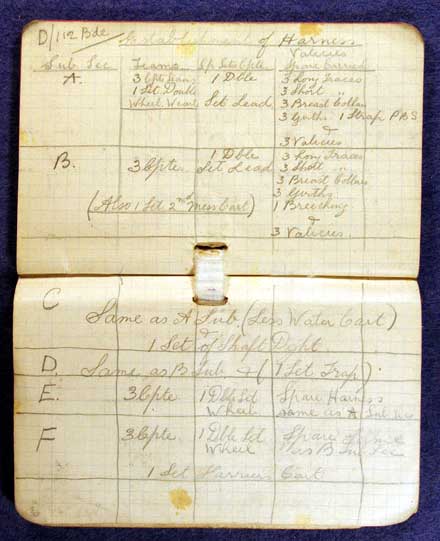 D/112 Bde
Establishment of Harness
Valicies
Sub Sec Teams Sp Sets Cple Spare Carried
A. 3 Cpte Teams 1 Dble 3 Long Traces
1 Set Double 3 Short "
Wheel Set Lead 3 Breast Collars
3 Girths 1 Strap
&
3 Valicies
B. 3 Cpte 1 Dble 3 Long Traces
Set Lead 3 Short "
3 Breast Collars
3 Girths
(Also 1 Set 2nd Mess Cart) 1 Breeching
&
3 Valicies
C Same as A Sub (Less Water Cart)
&
1 Set of Shaft Dept
D. Same as B Sub & (1 Set Trap)
E. 3 Cpte 1 Dble Set Spare Harness
Wheel same as A Sub Sec
F 3 Cpte 1 Dble Set Spare
Wheel as B Sub Sec
1 Set Farriers Cart